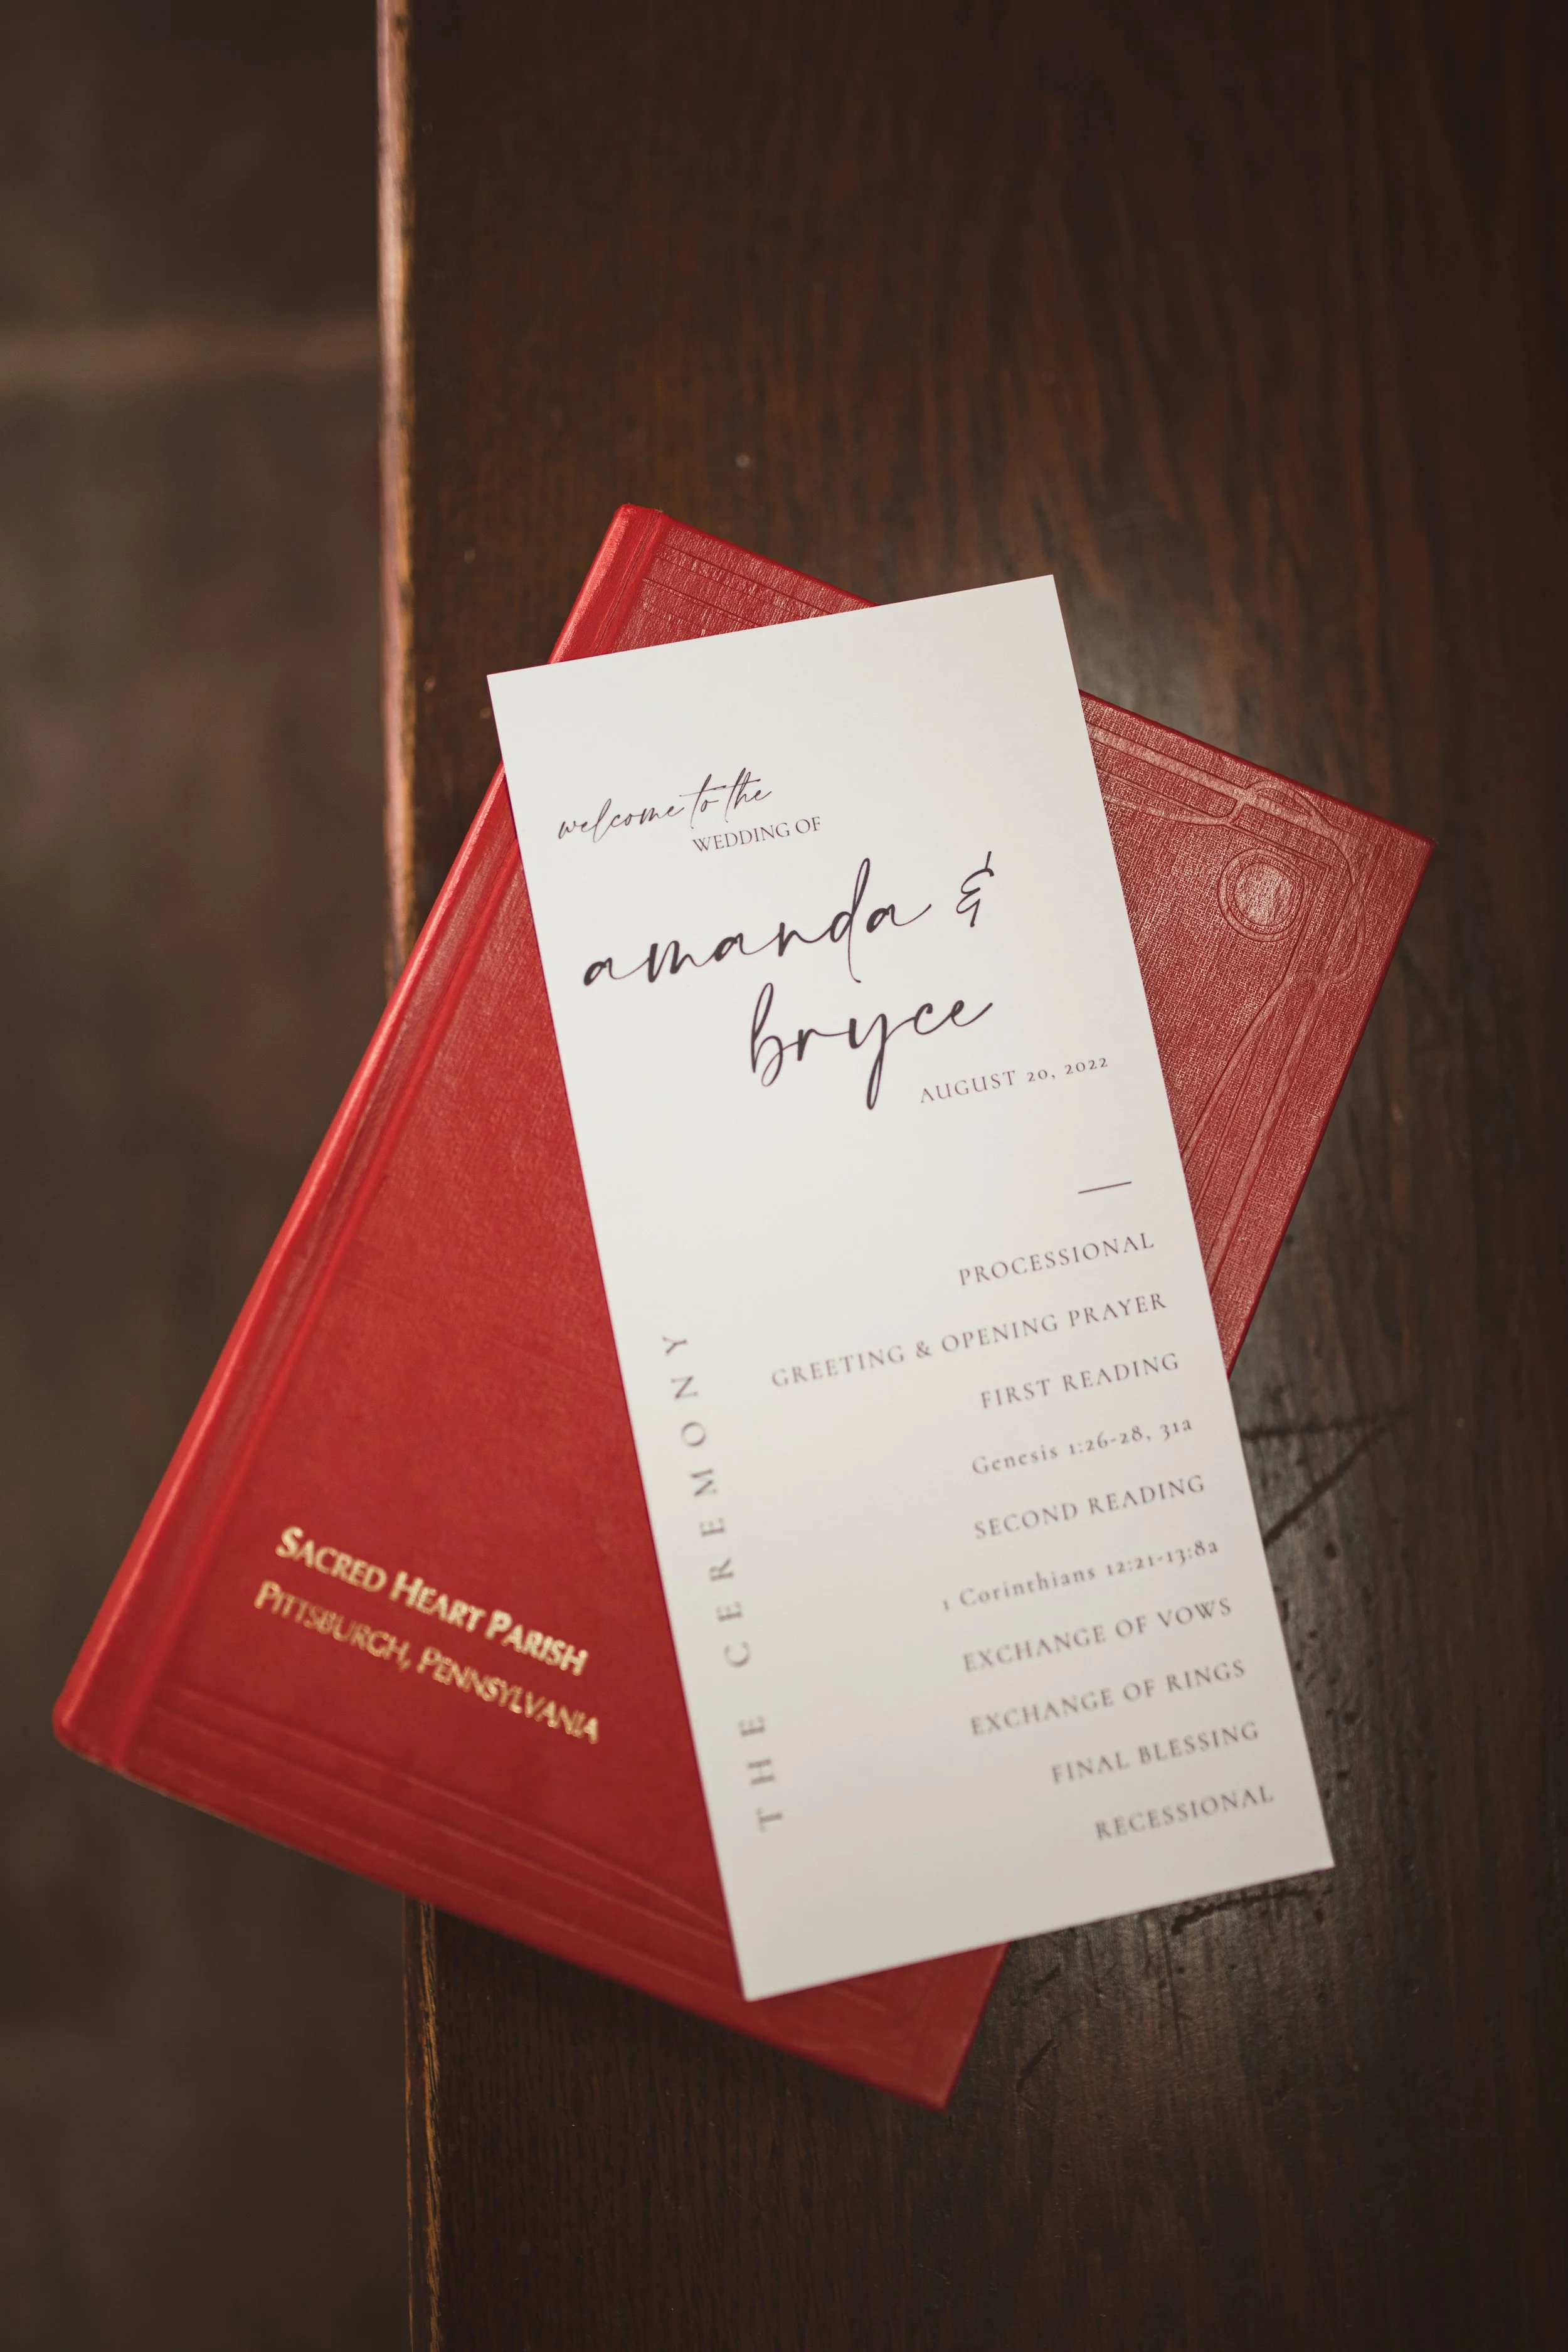 welcome to the
WEDDING OF
amanda &
bryce
AUGUST 20, 2022
THE CEREMONY
PROCESSIONAL
GREETING & OPENING PRAYER
FIRST READING
Genesis 1:26-28, 31a
SECOND READING
1 Corinthians 12:21-13:8a
EXCHANGE OF VOWS
EXCHANGE OF RINGS
FINAL BLESSING
RECESSIONAL
SACRED HEART PARISH
PITTSBURGH, PENNSYLVANIA